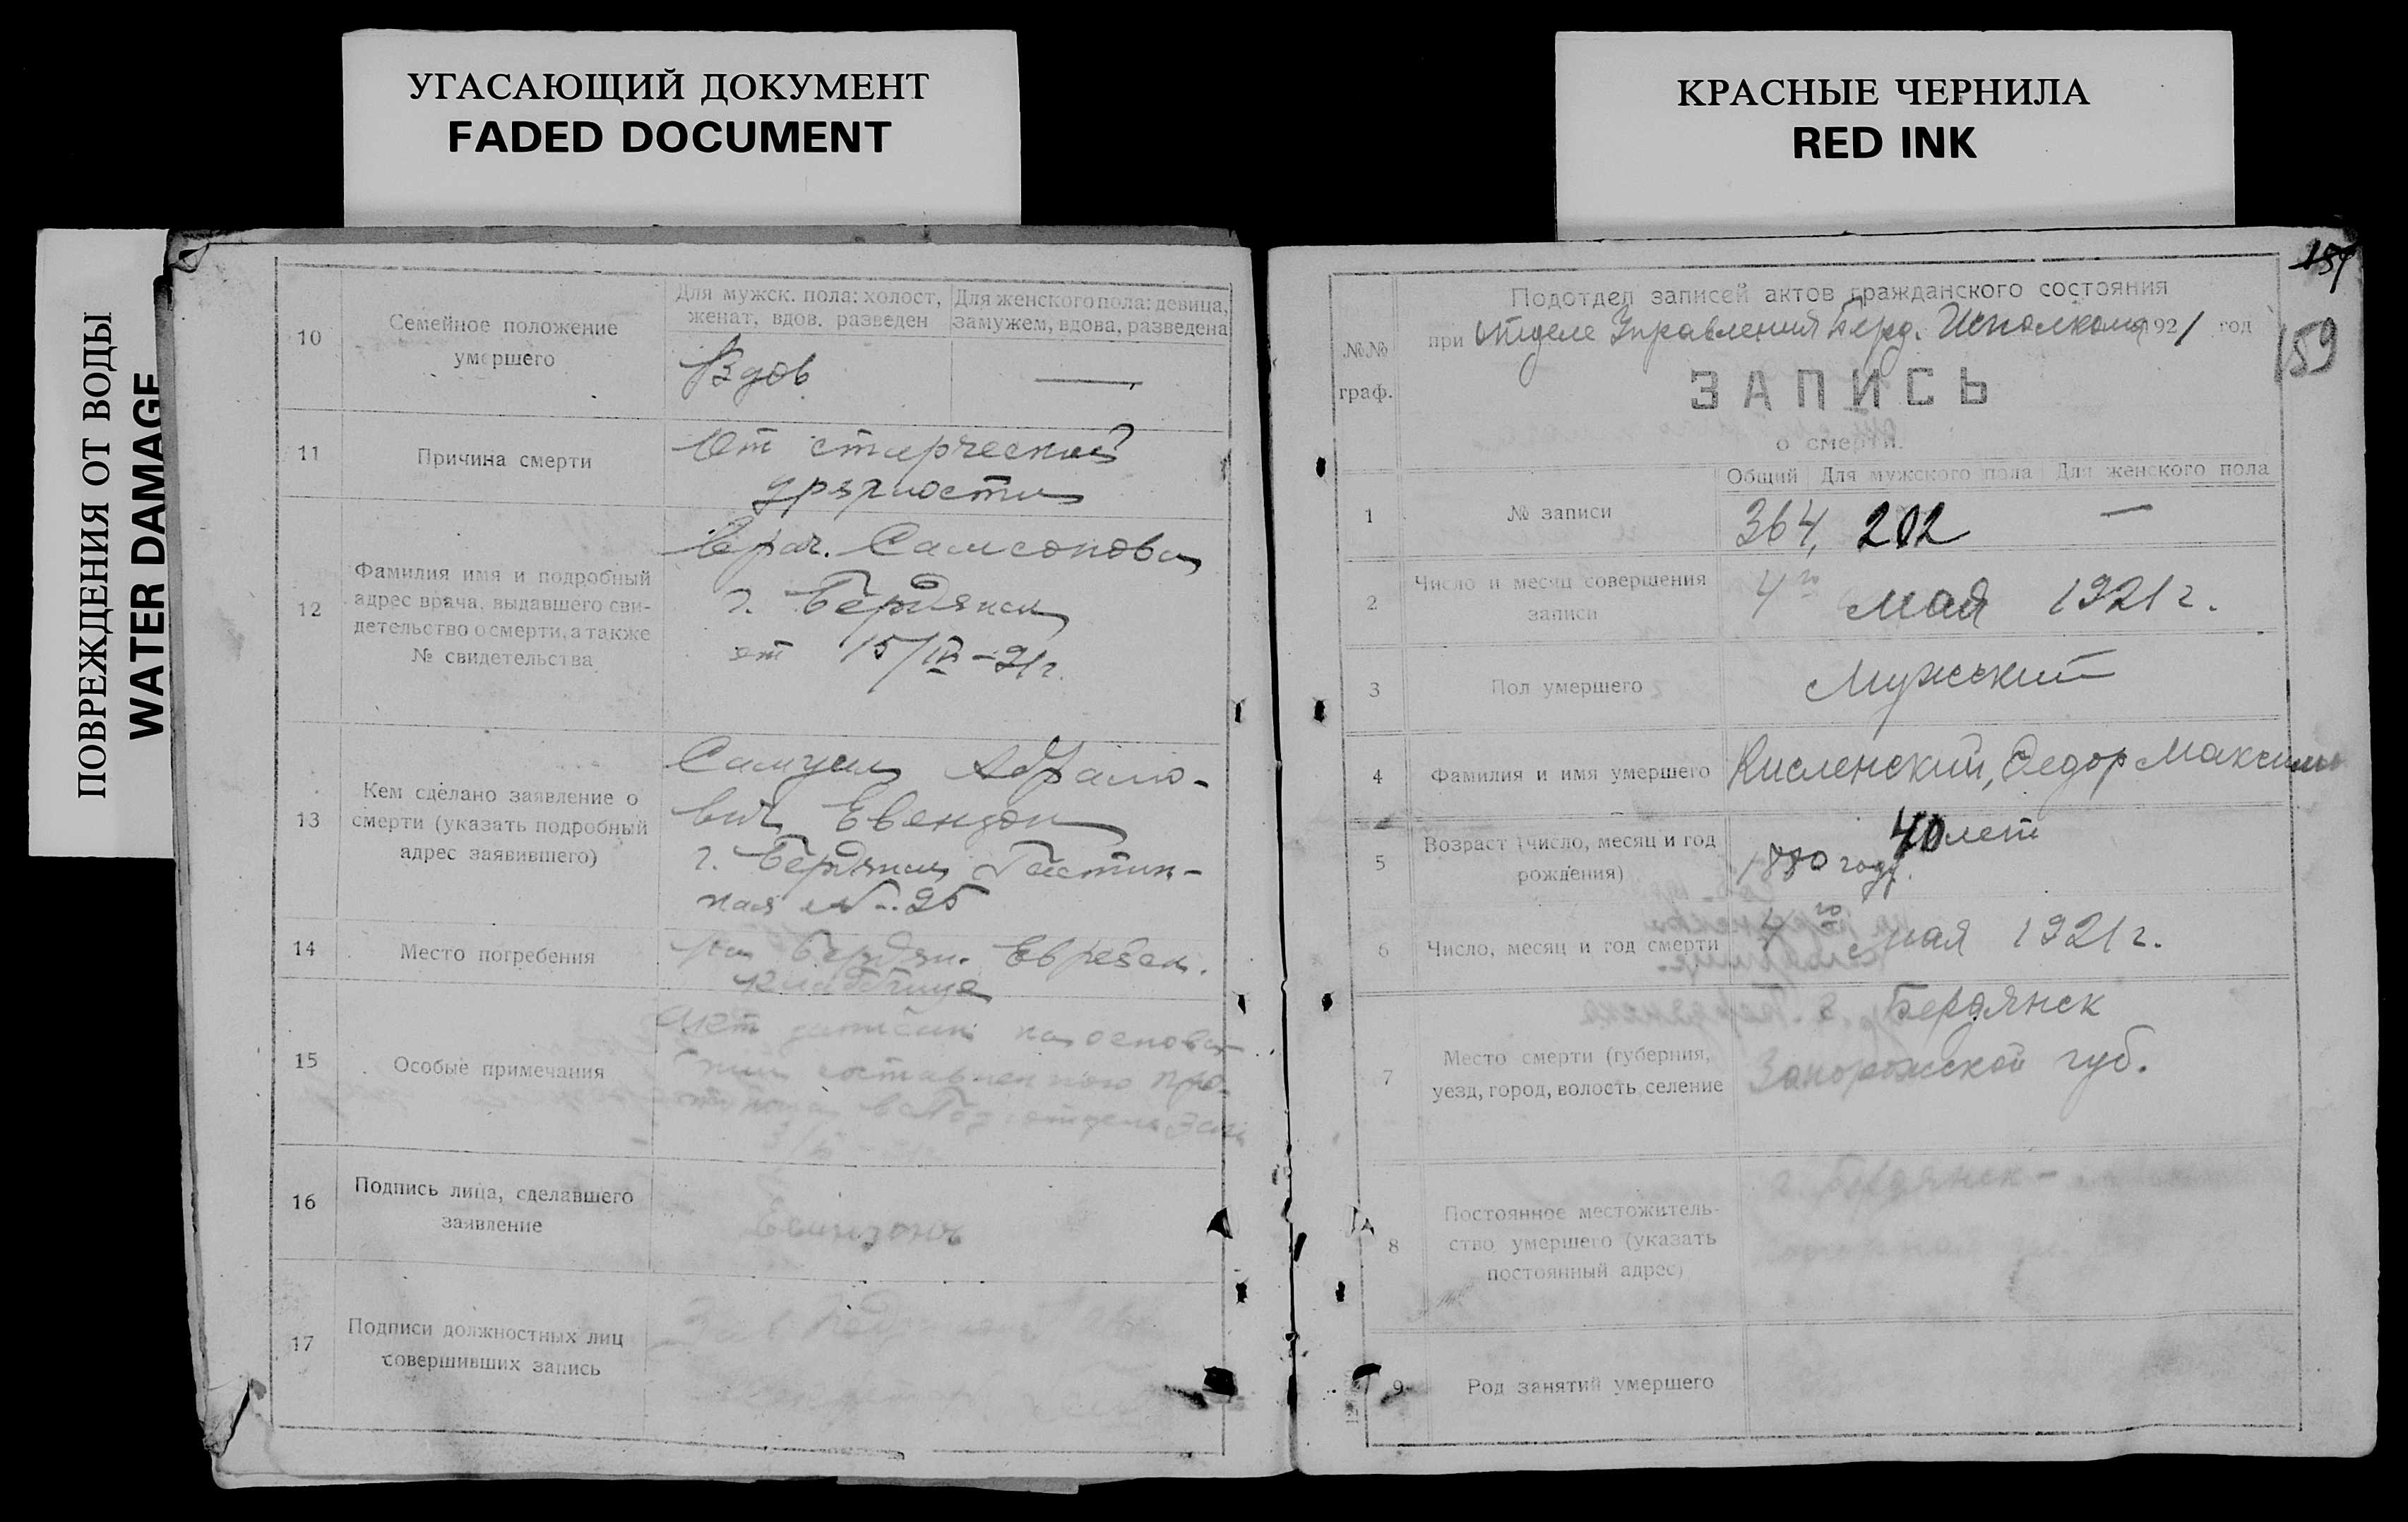 УГАСАЮЩИЙ ДОКУМЕНТ
FADED DOCUMENT
КРАСНЫЕ ЧЕРНИЛА
RED INK
ПОВРЕЖДЕНИЯ ОТ ВОДЫ
WATER DAMAGE
10
Семейное положение
умершего
Для мужск. пола: холост,
женат, вдов, разведен
Для женского пола: девица,
замужем, вдова, разведена
Вдов
—
11
Причина смерти
От старческой
дряхлости
12
Фамилия имя и подробный
адрес врача, выдавшего сви-
детельство о смерти, а также
№ свидетельства
Врач. Самсонова
г. Бердянск
от 15/IV–21 г.
13
Кем сделано заявление о
смерти (указать подробный
адрес заявившего)
Самуил Абрамо-
вич
г. Бердянск
№ 25
14
Место погребения
На Бердян. Еврейск.
кладбище
15
Особые примечания
Акт записан на основа-
нии составленного про-
16
Подпись лица, сделавшего
заявление
17
Подписи должностных лиц
совершивших запись
157
159
№№
граф.
Подотдел записей актов гражданского состояния
при Отделе Управления Берд. Исполкома 1921 год
ЗАПИСЬ
о смерти.
Общий
Для мужского пола
Для женского пола
1
№ записи
364, 202 —
2
Число и месяц совершения
записи
4го мая 1921 г.
3
Пол умершего
Мужский
4
Фамилия и имя умершего
Кисленский, Федор Максимов
5
Возраст (число, месяц и год
рождения)
40 лет
1880 году.
6
Число, месяц и год смерти
4го мая 1921 г.
7
Место смерти (губерния,
уезд, город, волость, селение
г. Бердянск
Запорожской губ.
8
Постоянное местожитель-
ство умершего (указать
постоянный адрес)
г. Бердянск –
9
Род занятий умершего